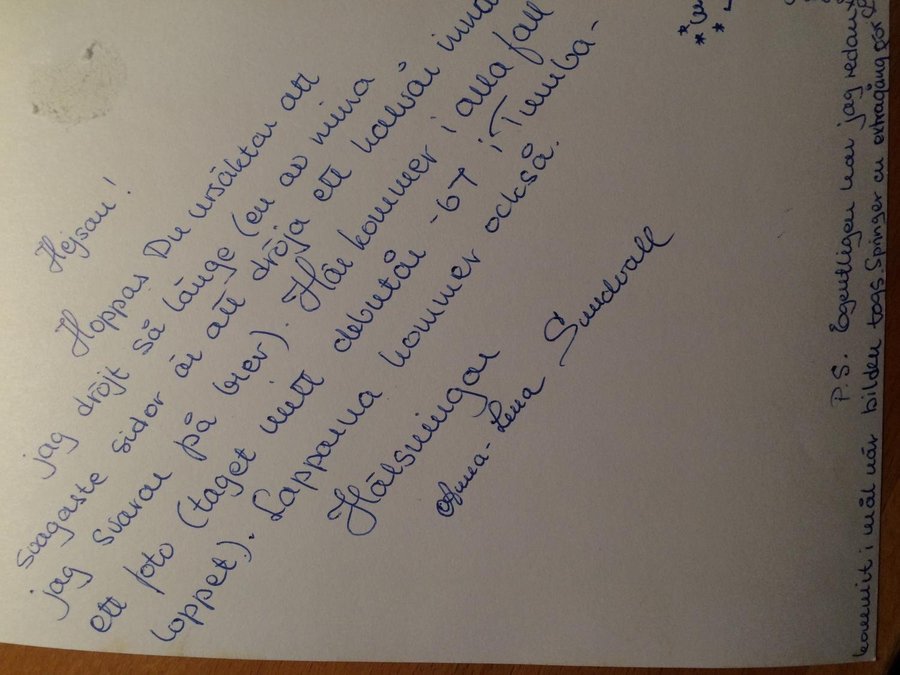 Hejsan!
Hoppas Du ursäktar att
jag dröjt så länge (en av mina
svagaste sidor är att dröja ett halvår inna
jag svarar på brev). Här kommer i alla fall
ett foto (taget mitt debutår -67 i Tumba-
loppet). Lapparna kommer också.
Hälsningar
Anna-Lena Sundvall
P.S. Egentligen har jag redan
kommit i mål när bilden togs. Springer en extragång för